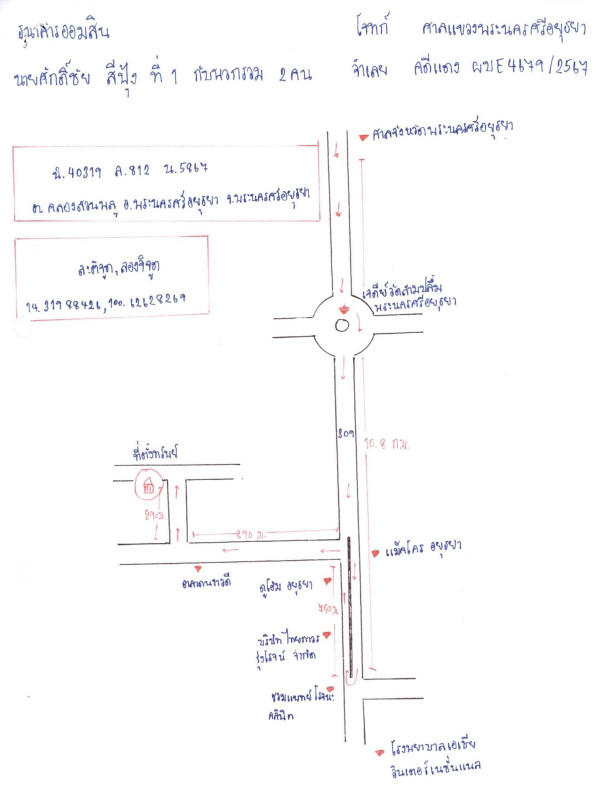 ธนาคารออมสิน โจทก์ ศาลแขวงพระนครศรีอยุธยา
นายศักดิ์ชัย สีฟุ้ง ที่ 1 กับพวกรวม 2 คน จำเลย คดีแดง ผบE4679/2567
ศาลจังหวัดพระนครศรีอยุธยา
ฉ.40319 ล.812 น.5867
ต.คลองสวนพลู อ.พระนครศรีอยุธยา จ.พระนครศรีอยุธยา
ละติจูด,ลองจิจูด
14.31988426,100.62628269
เจดีย์วัดสามปลื้ม
พระนครศรีอยุธยา
309
10.8 ก.ม.
ที่ตั้งทรัพย์
290 ม.
890 ม.
แม็คโคร อยุธยา
ดูโฮม อยุธยา
750 ม.
บริษัทไทยถาวร
รุ่งโรจน์ จำกัด
ชวมแพทย์ โรจนะ
คลินิก
โรงพยาบาลเอเชีย
อินเตอร์เนชั่นแนล